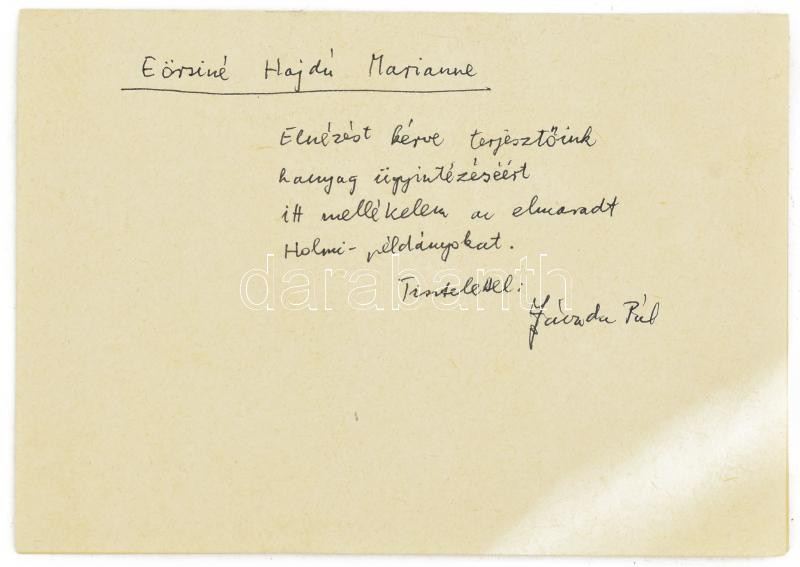 Eörsiné Hajdú Marianne
Elnézést kérve terjesztőink
hanyag ügyintézéséért
itt mellékelem az elmaradt
Holmi-példányokat.
darabanth
Tisztelettel:
Závada Pál